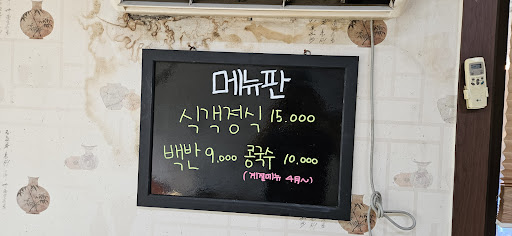 메뉴판
식객정식 15.000
백반 9.000 콩국수 10.000
(계절메뉴 4月~)